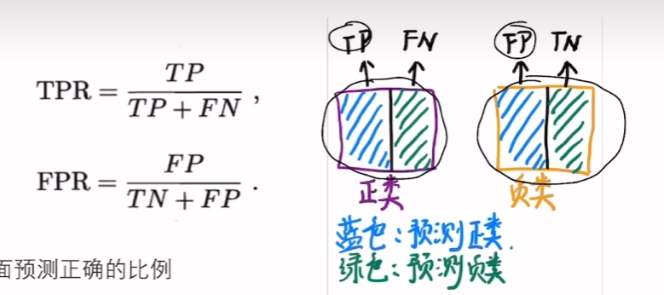 TPR = TP / (TP + FN) ,
FPR = FP / (TN + FP) .
面预测正确的比例
TP FN FP TN
正类 负类
蓝色：预测正类.
绿色：预测负类